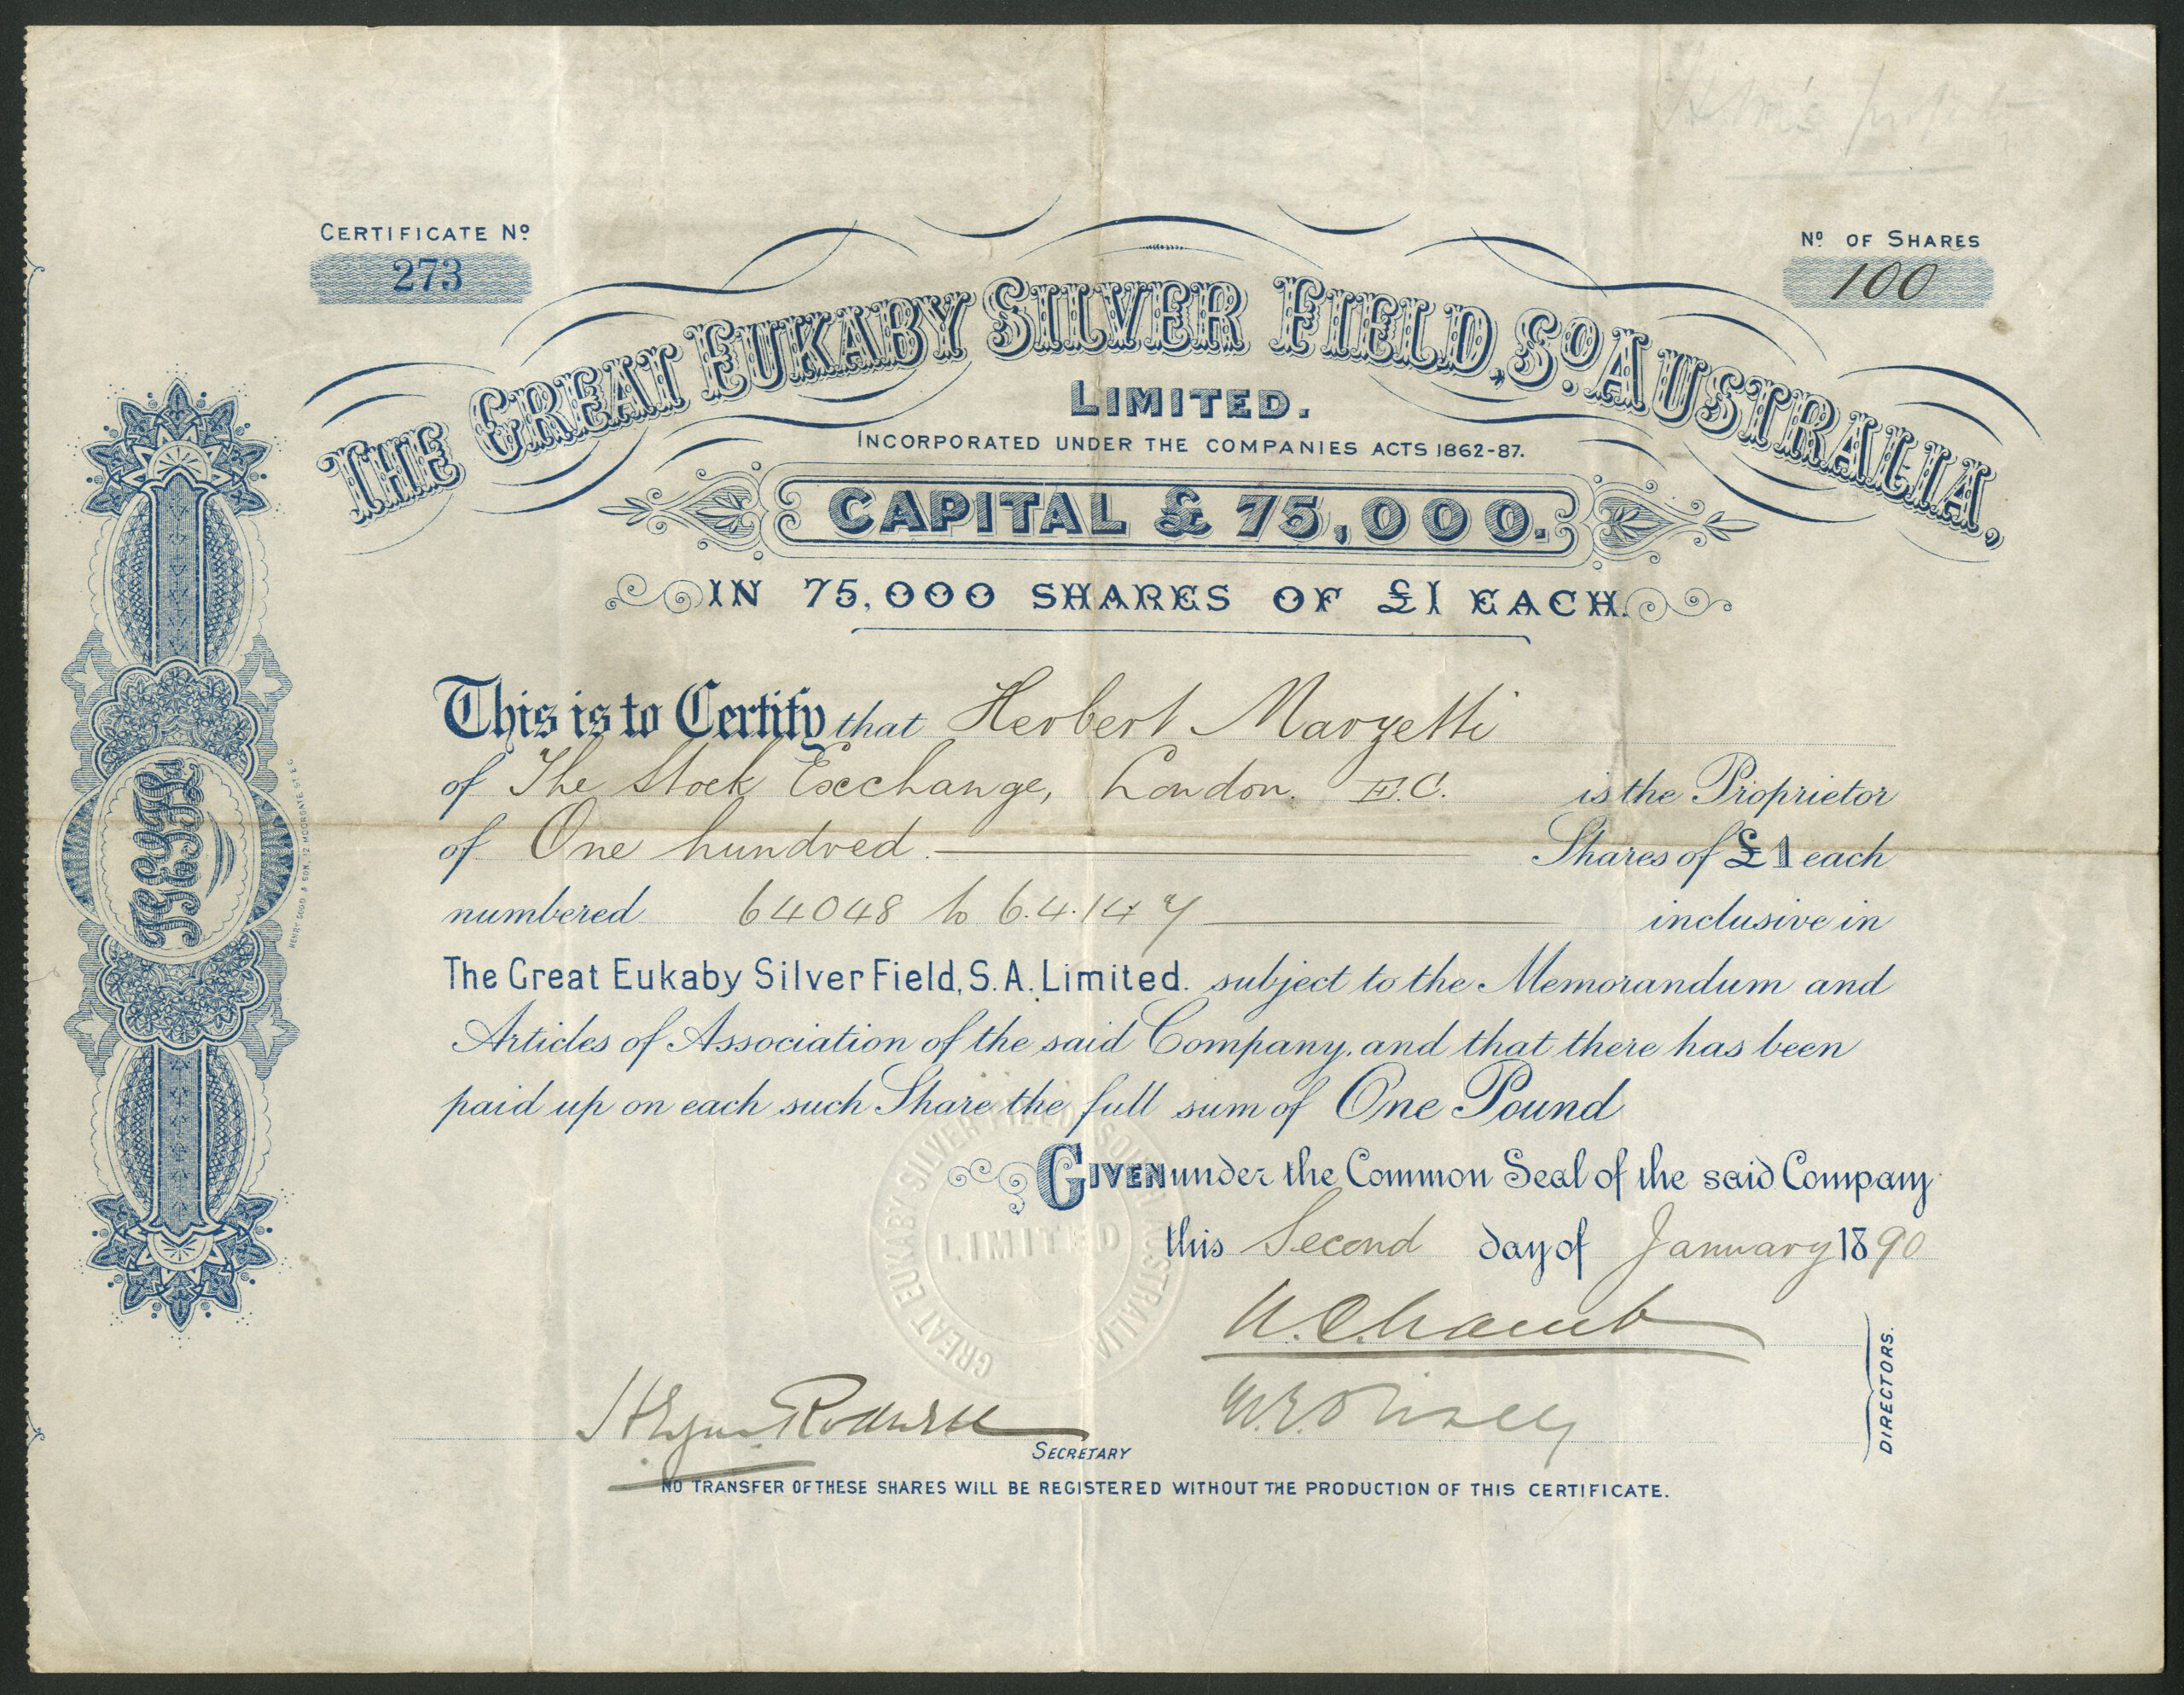 CERTIFICATE Nº
273
Nº OF SHARES
100
THE GREAT EUKABY SILVER FIELD, SO. AUSTRALIA,
LIMITED.
INCORPORATED UNDER THE COMPANIES ACTS 1862-87.
CAPITAL £ 75,000.
IN 75,000 SHARES OF £1 EACH.
This is to Certify that Herbert Marzetti
of The Stock Exchange, London. E.C. is the Proprietor
of One hundred. Shares of £1 each
numbered 64048 to 6.4.147 inclusive in
The Great Eukaby Silver Field, S.A. Limited. subject to the Memorandum and
Articles of Association of the said Company, and that there has been
paid up on each such Share the full sum of One Pound
GIVEN under the Common Seal of the said Company
this Second day of January 1890
GREAT EUKABY SILVER FIELD SOUTH AUSTRALIA
LIMITED
DIRECTORS.
SECRETARY
NO TRANSFER OF THESE SHARES WILL BE REGISTERED WITHOUT THE PRODUCTION OF THIS CERTIFICATE.
HENRY GOOD & SON, 12 MOORGATE ST E.C.